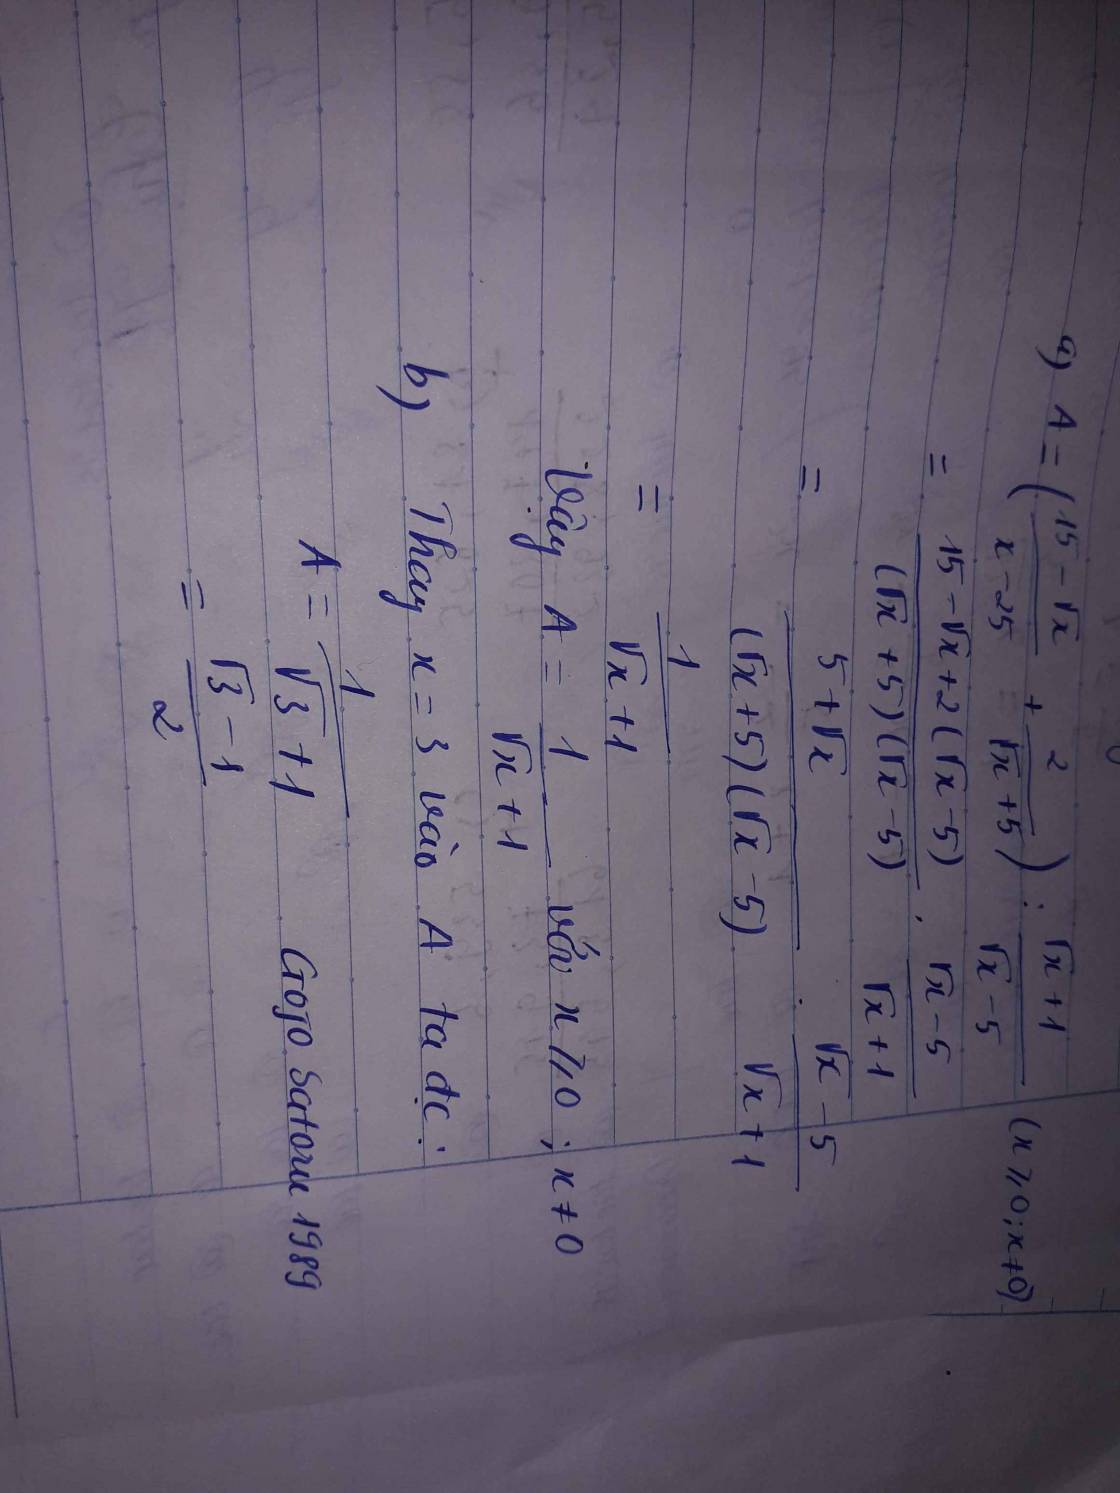 a) A = ( (15 - √x)/(x - 25) + 2/(√x + 5) ) : (√x + 1)/(√x - 5) (x ⩾ 0; x ≠ 0)
= (15 - √x + 2(√x - 5))/((√x + 5)(√x - 5)) . (√x - 5)/(√x + 1)
= (5 + √x)/((√x + 5)(√x - 5)) . (√x - 5)/(√x + 1)
= 1/(√x + 1)
Vậy A = 1/(√x + 1) với x ⩾ 0; x ≠ 0
b) Thay x = 3 vào A ta đc:
A = 1/(√3 + 1)
Gojo Satoru 1989
= (√3 - 1)/2